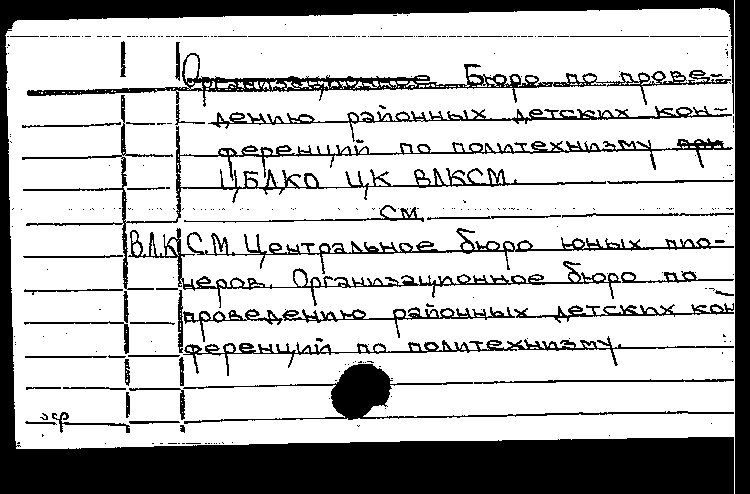 Организационное Бюро по прове-
дению районных детских кон-
ференций по политехнизму при
ЦБДКО ЦК ВЛКСМ.
см.
В.Л.К.С.М. Центральное бюро юных пио-
неров. Организационное бюро по
проведению районных детских кон
ференций по политехнизму.